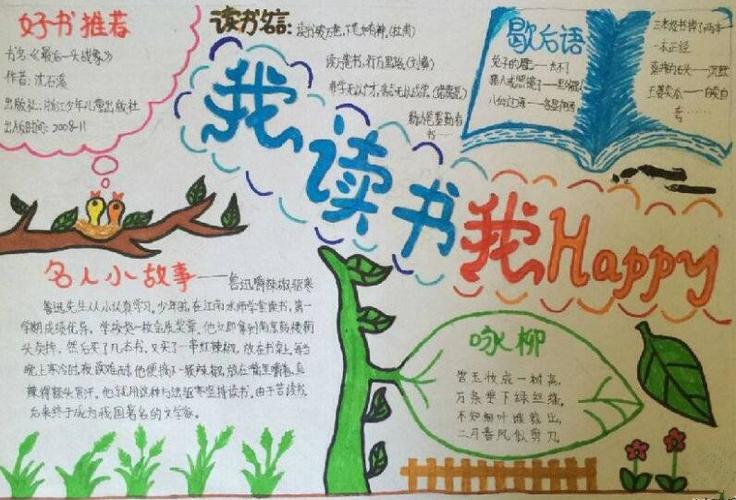 好书推荐
书名:《最后一头战象》
作者:沈石溪
出版社:浙江少年儿童出版社
出版时间:2008-11
读书名言:
读书破万卷,下笔如有神。(杜甫)
读万卷书,行万里路。(刘彝)
非学无以广才,非志无以成学。(诸葛亮)
歇后语
我读书我Happy
名人小故事——鲁迅嚼辣椒驱寒
鲁迅先生从小认真学习。少年时,在江南水师学堂读书,第一
学期成绩优异,学校奖一枚金质奖章。他立即拿到南京鼓楼街
头卖掉,然后买了几本书,又买了一串红辣椒。
晚上寒冷时,夜读难耐,他便摘下一颗辣椒,放在嘴里嚼着,直
辣得额头冒汗。他就用这种办法驱寒坚持读书。由于苦读书,
后来终于成为我国著名的文学家。
咏柳
碧玉妆成一树高,
万条垂下绿丝绦。
不知细叶谁裁出,
二月春风似剪刀。